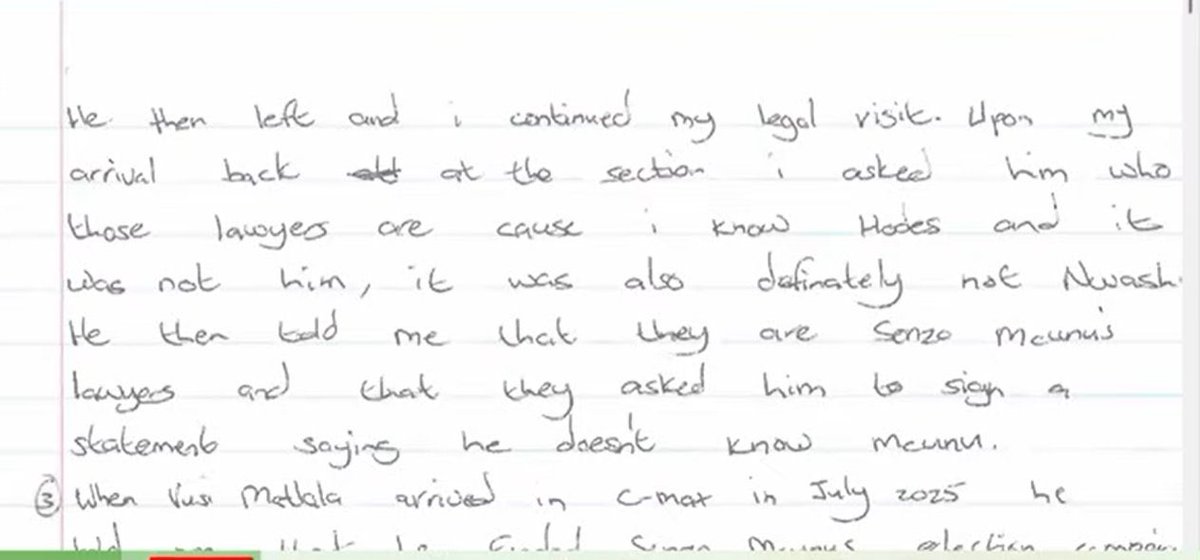 He then left and i continued my legal visit. Upon my
arrival back at the section i asked him who
those lawyers are cause i know Hodes and it
was not him, it was also definately not Nwash.
He then told me that they are Senzo Mcunu's
lawyers and that they asked him to sign a
statement saying he doesn't know mcunu.
③ When Vusi Matlala arrived in C-max in July 2025 he
election